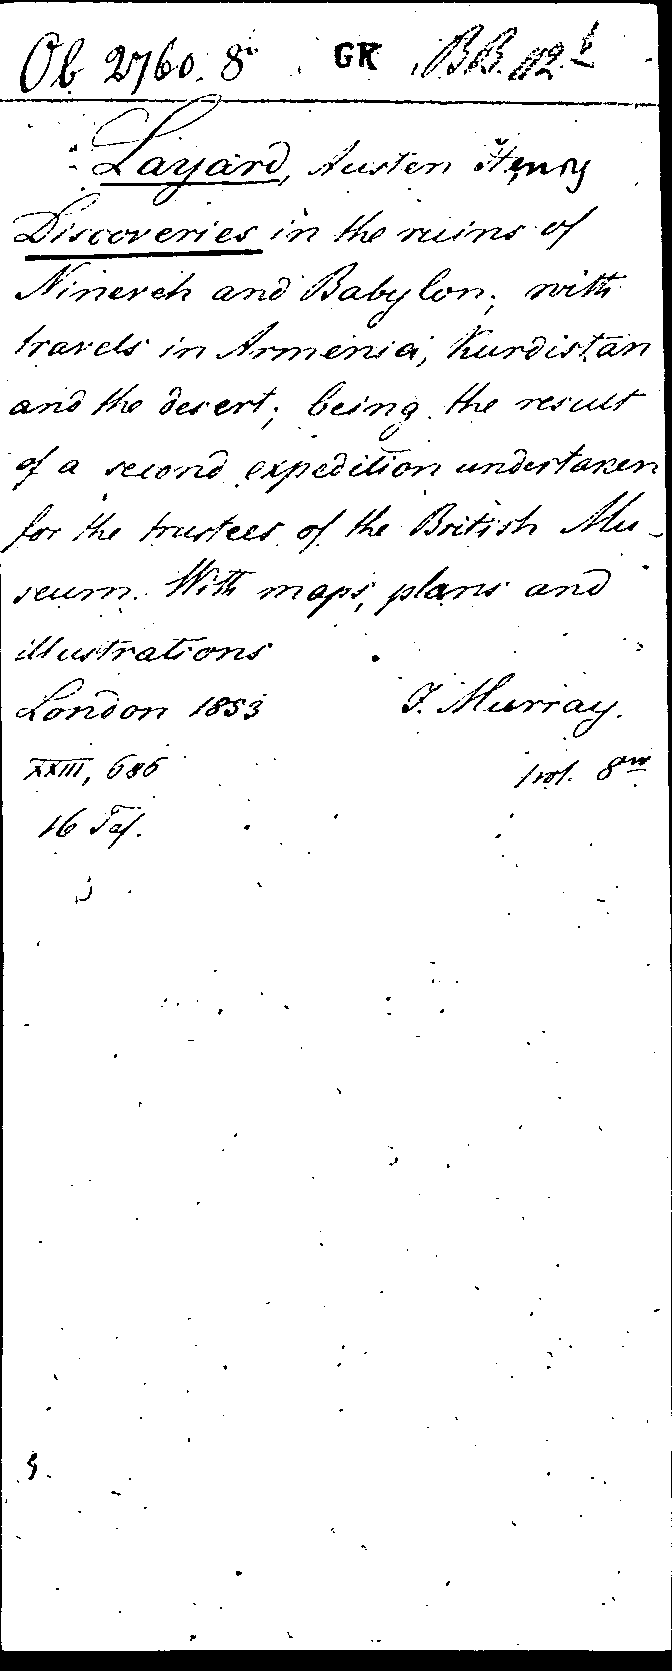 Ob 2760. 8° GK B.B. 112 b
Layard, Austen Henry
Discoveries in the ruins of
Nineveh and Babylon; with
travels in Armenia, Kurdistan
and the desert; being the result
of a second expedition undertaken
for the trustees of the British Mu-
seum. With maps, plans and
illustrations
London 1853 J. Murray.
XXIII, 686 1 vol. 8vo
16 Taf.